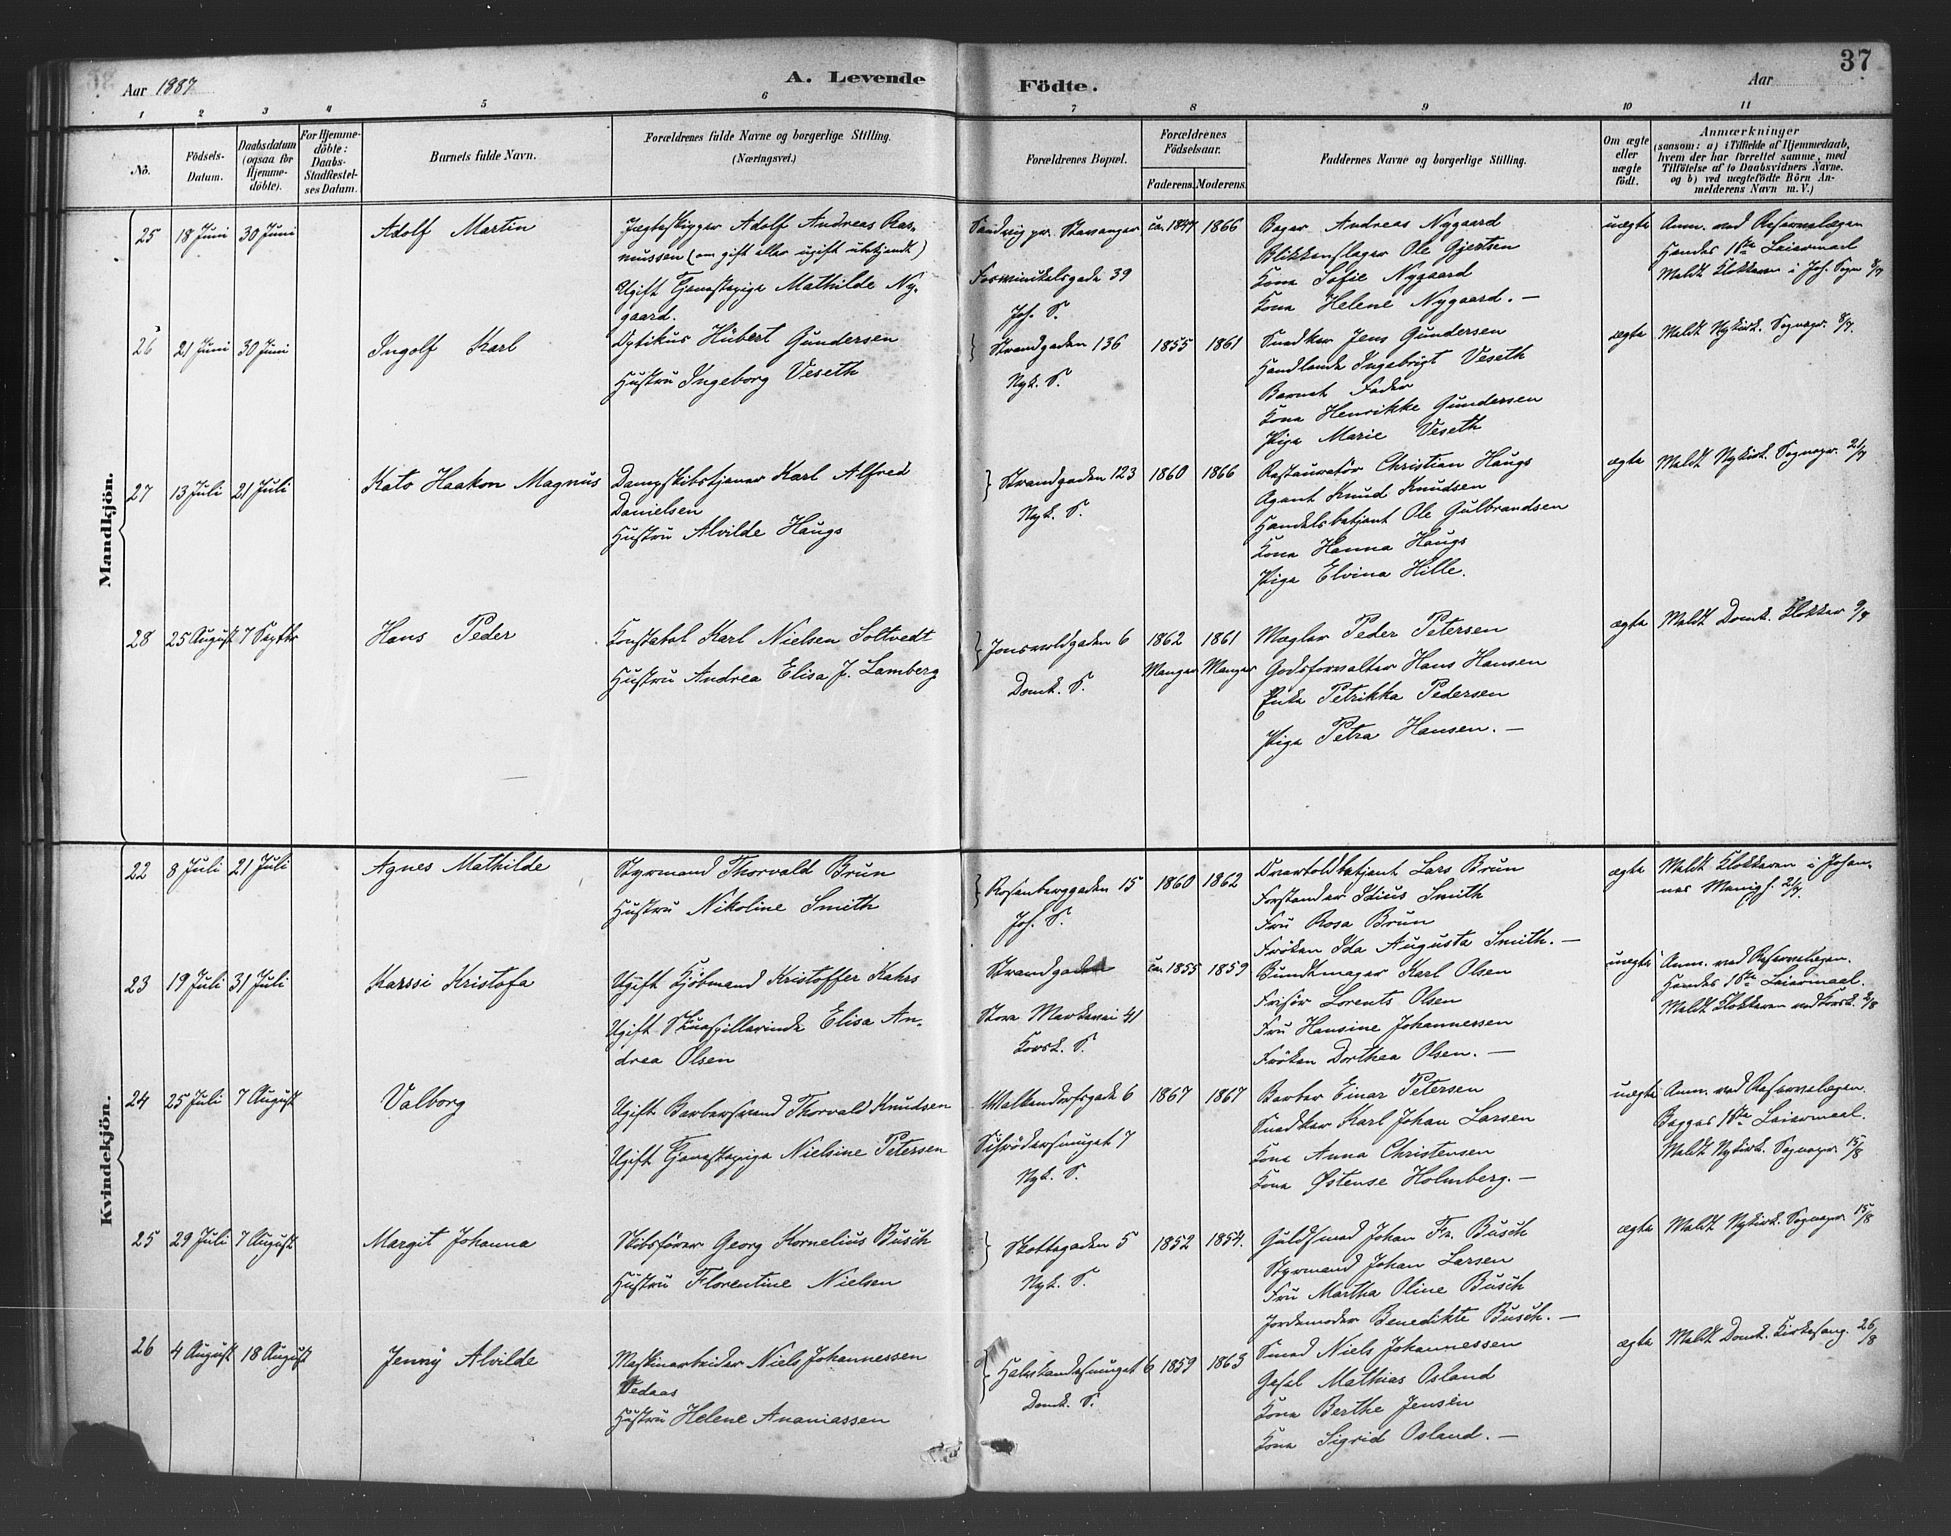 Aar 1887
A. Levende Födte.
Aar
37
1 2 3 4 5 6 7 8 9 10 11
No.
Födsels-
Datum.
Daabsdatum
(ogsaa for
Hjemme-
döbte).
For Hjemme-
döbte:
Daabs-
Stadfæstel-
ses Datum.
Barnets fulde Navn.
Forældrenes fulde Navne og borgerlige Stilling.
(Næringsvei.)
Forældrenes Bopæl.
Forældrenes
Födselsaar.
Faderens. Moderens.
Faddernes Navne og borgerlige Stilling.
Om ægte
eller
uægte
födt.
Anmærkninger
(saasom: a) i Tilfælde af Hjemmedaab,
hvem der har forrettet samme, med
Tilföielse af to Daabsvidners Navne.
og b) ved uægtefödte Börn An-
melderens Navn m. V.)
Mandkjön.
25 18 Juni 30 Juni
Adolf Martin
Jægteskipper Adolf Andreas Ras-
mussen (om gift eller ugift ubekjendt)
Ugift Tjenestepige Mathilde Ny-
gaard.
Sandvig pr. Stavanger
39
Joh. S.
ca. 1847 1866
Bager Andreas Nygaard
Blikkenslager Ole Gjertsen
Kone Sofie Nygaard
Kone Helene Nygaard. —
uægte
Anm. ved Reservelægen
Hendes 1ste Leiermaal
Meldt Klokkeren i Joh. Sogn 8/7
26 21 Juni 30 Juni
Ingolf Karl
Optikus Hübert Gundersen
Hustru Ingeborg Veseth
Strandgaden 136
Nyk. S.
1855 1861
Snedker Jens Gundersen
Handlende Ingebrigt Veseth
Barnets Fader
Kone Henrikke Gundersen
Pige Marie Veseth
ægte
Meldt Nykirk. Sognepr. 8/7.
27 13 Juli 21 Juli
Kato Haakon Magnus
Dampskibstjener Karl Alfred
Danielsen
Hustru Alvilde Haugs
Strandgaden 123
Nyk. S.
1860 1866
Restauratör Christian Haugs
Agent Knud Knudsen
Handelsbetjent Ole Gulbrandsen
Kone Hanna Haugs
Pige Elvina Hille.
ægte
Meldt Nykirk. Sognepr. 21/7
28 25 August 7 Septbr
Hans Peder
Konstabel Karl Nielsen Soltvedt
Hustru Andrea Elisa J. Lamberg
Jonsvoldgaden 6
Domk. S.
1862 1861
Manger Manger
Mægler Peder Petersen
Godsforvalter Hans Hansen
Enke Petrikka Pedersen
Pige Petra Hansen. —
ægte
Meldt Domk. Klokker 9/9
Kvindekjön.
22 8 Juli 21 Juli
Agnes Mathilde
Styrmand Thorvald Brun
Hustru Nikoline Smith
Rosenberggaden 15
Joh. S.
1860 1862
Overtoldbetjent Lars Brun
Forstander Smith
Fru Rosa Brun
Fröken Ida Augusta Smith. —
ægte
Meldt Klokkeren i Johan-
nes Menigh. 21/7.
23 19 Juli 31 Juli
Karssi Kristofa
Ugift Kjöbmand Kristoffer Kahrs
Ugift Skuespillerinde Elisa An-
drea Olsen
Strandgaden
Store Markevei 41
Korsk. S.
ca. 1855 1859
Bundtmager Karl Olsen
Frisör Lorents Olsen
Fru Hansine Johannessen
Fröken Dorthea Olsen. —
uægte
Anm. ved Reservelægen.
Hendes 1ste Leiermaal.
Meldt Klokkeren ved Korsk. 2/8
24 25 Juli 7 August
Valborg
Ugift Barbersvend Thorvald Knudsen
Ugift Tjenestepige Nielsine Petersen
Walkendorfsgade 6
Schrödersmuget 7
Nyk. S.
1867 1867
Barber Einar Petersen
Snedker Karl Johan Larsen
Kone Anna Christensen
Kone Østense Holmberg. —
uægte
Anm. ved Reservelægen.
Begges 1ste Leiermaal.
Meldt Nykirk. Sognepr. 15/8
25 29 Juli 7 August
Margit Johanna
Skibsförer Georg Kornelius Busch
Hustru Florentine Nielsen
Skottegaden 5
Nyk. S.
1852 1854.
Guldsmed Johan Fr. Busch
Styrmand Johan Larsen
Fru Martha Oline Busch
Jordemoder Benedikte Busch. —
ægte
Meldt Nykirk. Sognepr. 15/8
26 4 August 18 August
Jenny Alvilde
Maskinarbeider Niels Johannessen
Vedaas
Hustru Helene Ananiassen
6
Domk. S.
1859 1863
Smed Niels Johannessen
Gesel Mathias Osland
Kone Berthe Jensen
Kone Sigrid Osland. —
ægte
Meldt Domk. Kirkesang. 26/8